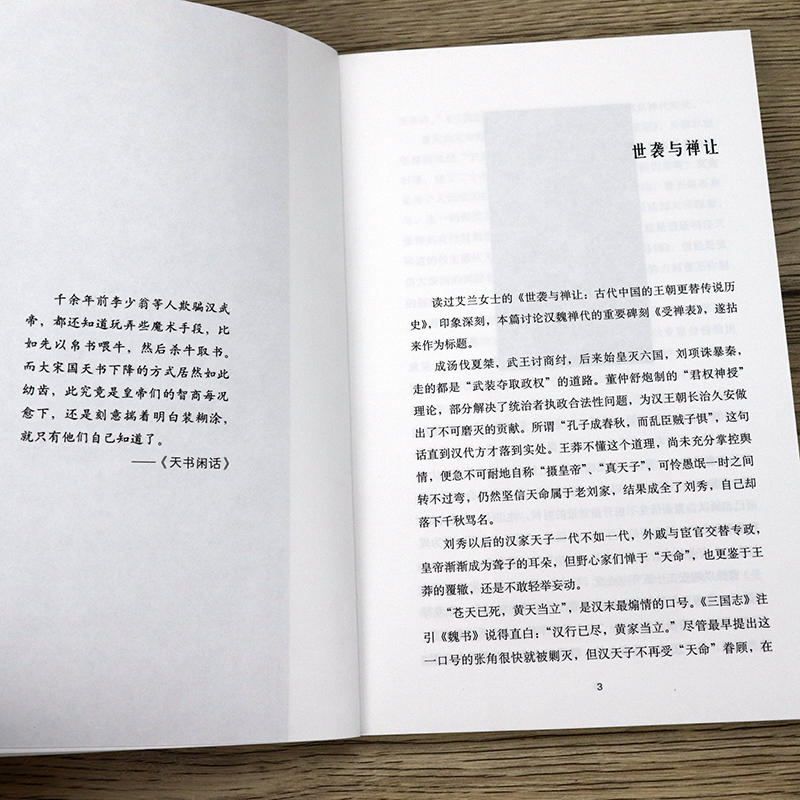 千余年前李少翁等人欺骗汉武
帝，都还知道玩弄些魔术手段，比
如先以帛书喂牛，然后杀牛取书。
而大宋国天书下降的方式居然如此
幼齿，此究竟是皇帝们的智商每况
愈下，还是刻意揣着明白装糊涂，
就只有他们自己知道了。
——《天书闲话》
世袭与禅让
读过艾兰女士的《世袭与禅让：古代中国的王朝更替传说历
史》，印象深刻，本篇讨论汉魏禅代的重要碑刻《受禅表》，遂拈
来作为标题。
成汤伐夏桀，武王讨商纣，后来始皇灭六国，刘项诛暴秦，
走的都是“武装夺取政权”的道路。董仲舒炮制的“君权神授”
理论，部分解决了统治者执政合法性问题，为汉王朝长治久安做
出了不可磨灭的贡献。所谓“孔子成春秋，而乱臣贼子惧”，这句
话直到汉代方才落到实处。王莽不懂这个道理，尚未充分掌控舆
情，便急不可耐地自称“摄皇帝”、“真天子”，可怜愚氓一时之间
转不过弯，仍然坚信天命属于老刘家，结果成全了刘秀，自己却
落下千秋骂名。
刘秀以后的汉家天子一代不如一代，外戚与宦官交替专政，
皇帝渐渐成为聋子的耳朵，但野心家们惮于“天命”，也更鉴于王
莽的覆辙，还是不敢轻举妄动。
“苍天已死，黄天当立”，是汉末最煽情的口号。《三国志》注
引《魏书》说得直白：“汉行已尽，黄家当立。”尽管最早提出这
一口号的张角很快就被剿灭，但汉天子不再受“天命”眷顾，在
3